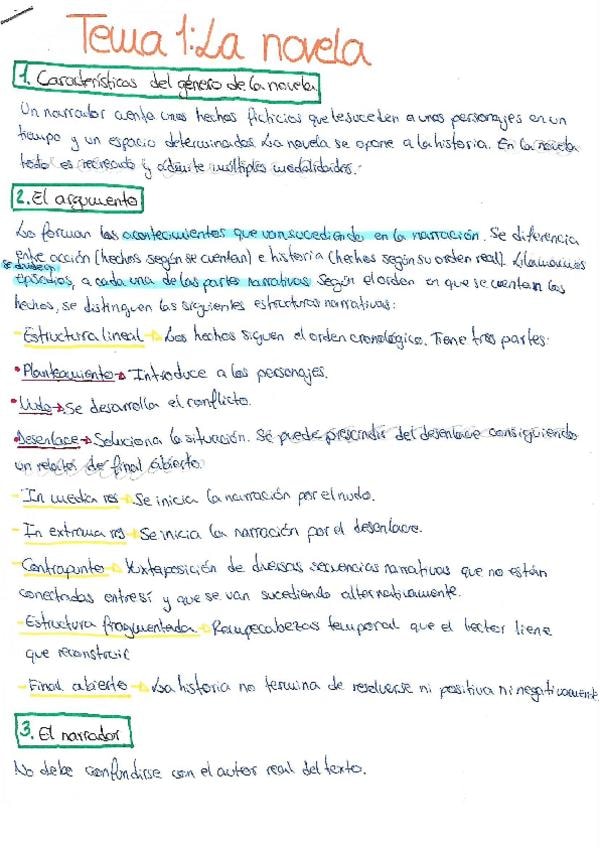 Tema 1: La novela
1. Características del género de la novela
Un narrador cuenta unos hechos ficticios que le suceden a unos personajes en un
tiempo y un espacio determinados. La novela se opone a la historia. En la novela
todo es recreado y admite múltiples modalidades.
2. El argumento
Lo forman los acontecimientos que van sucediendo en la narración. Se diferencia
entre acción (hechos según se cuentan) e historia (hechos según su orden real). Llamamos
se divide en
episodios, a cada una de las partes narrativas. Según el orden en que se cuentan los
hechos, se distinguen las siguientes estructuras narrativas:
- Estructura lineal → Los hechos siguen el orden cronológico. Tiene tres partes:
• Planteamiento → Introduce a los personajes.
• Nudo → Se desarrolla el conflicto.
• Desenlace → Soluciona la situación. Se puede prescindir del desenlace consiguiendo
un relato de final abierto.
- In media res → Se inicia la narración por el nudo.
- In extrema res → Se inicia la narración por el desenlace.
- Contrapunto → Yuxtaposición de diversas secuencias narrativas que no están
conectadas entre sí y que se van sucediendo alternativamente.
- Estructura fragmentada → Rompecabezas temporal que el lector tiene
que reconstruir
- Final abierto → La historia no termina de resolverse ni positiva ni negativamente
3. El narrador
No debe confundirse con el autor real del texto.